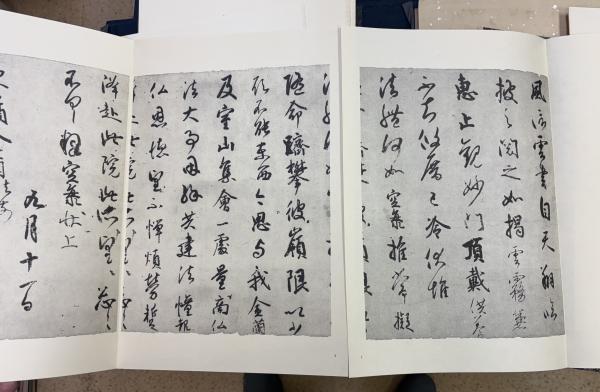 風信雲書自天翔臨
披之閲之如揭雲霧兼
恵止觀妙門頂戴供養
不知攸厝已冷伏惟
法體何如空海推常擬
隨命躋攀彼嶺限以少
願不能東西今思与我金蘭
及室山集會一處量商仏
法大事因緣共建法幢報
仏恩德望不憚煩勞蹔
降赴此院此所望〻忩〻
不具釋空海狀上
九月十一日